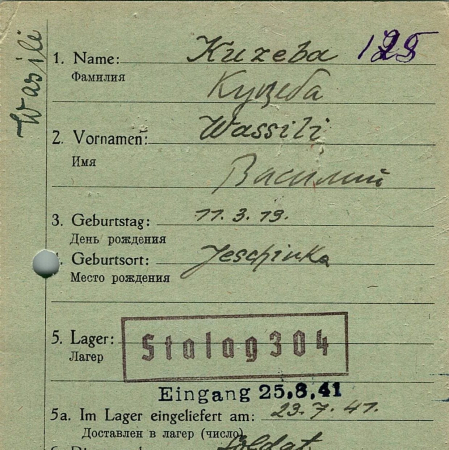 Wasili
1. Name: Kuzeba 125
Фамилия Куцеба
2. Vornamen: Wassili
Имя Василий
3. Geburtstag: 11.3.19.
День рождения
4. Geburtsort: Jeschinka
Место рождения
5. Lager: Stalag 304
Лагер
Eingang 25.8.41
5a. Im Lager eingeliefert am: 23.7.41.
Доставлен в лагер (число)
Soldat